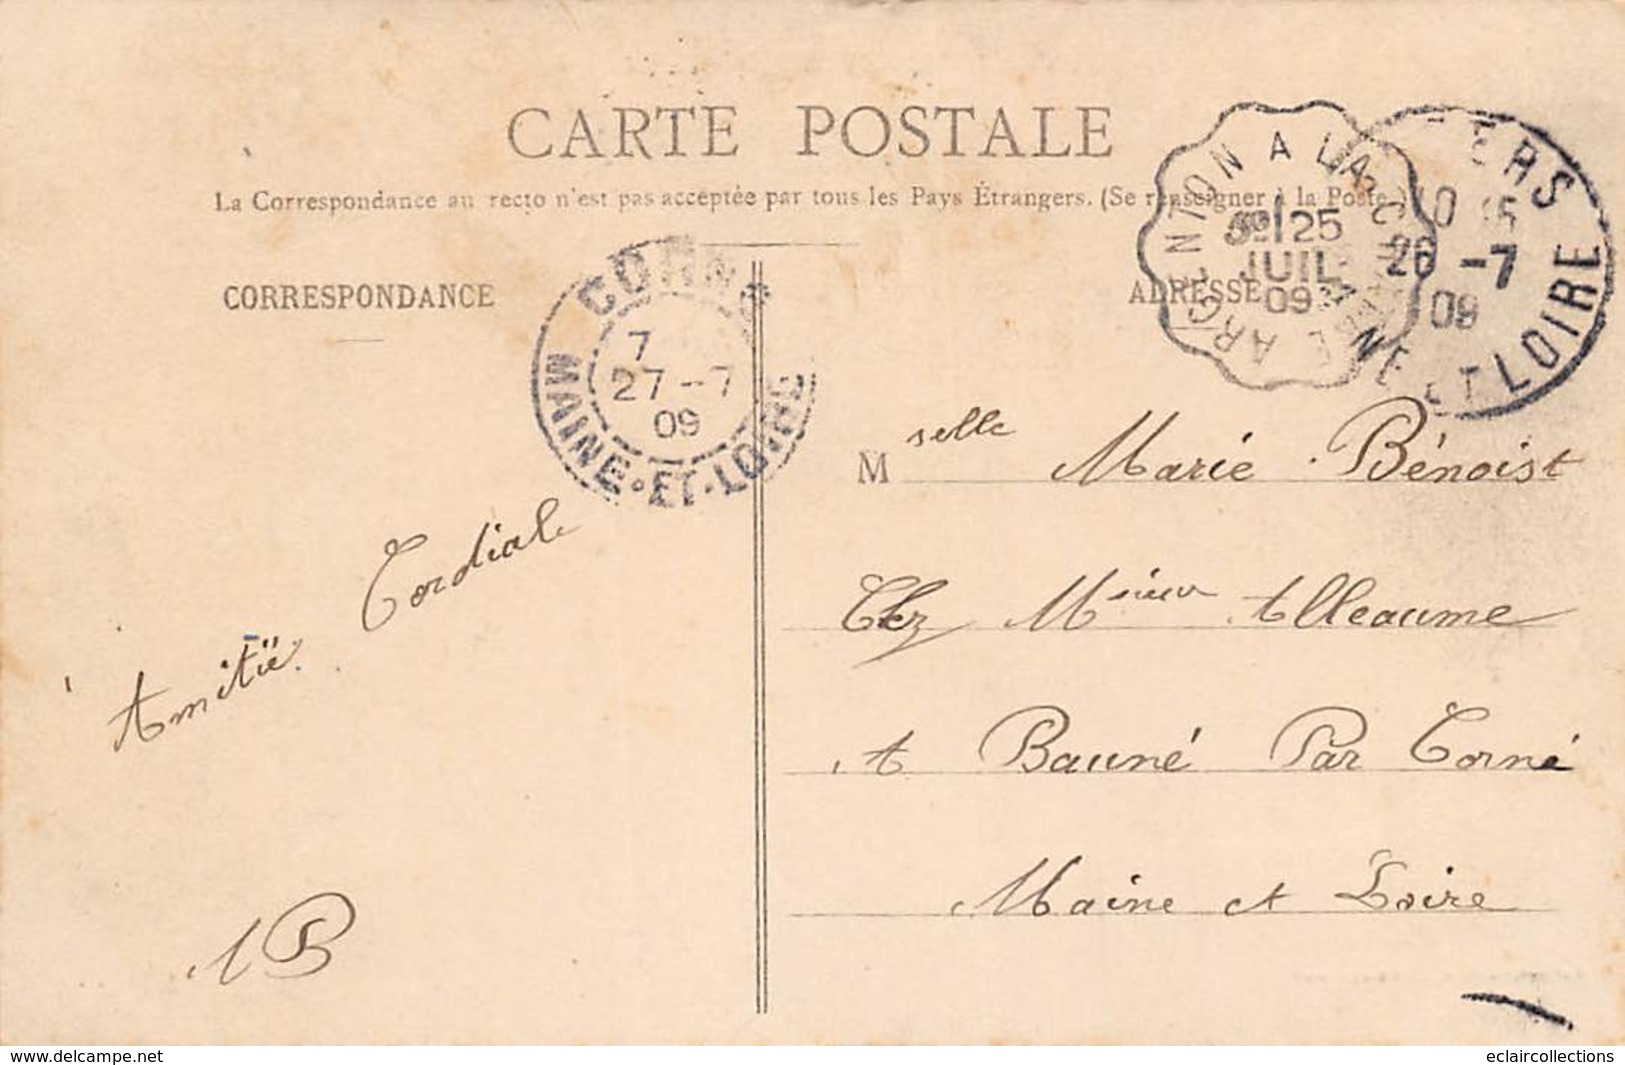 CARTE POSTALE
La Correspondance au recto n'est pas acceptée par tous les Pays Étrangers. (Se renseigner à la Poste.)
CORRESPONDANCE
ADRESSE
ARGENTON A LA
25
JUIL
09
26 -7
09
ET LOIRE
CORNÉ
7
27-7
09
MAINE-ET-LOIRE
Mselle Marie Bénoist
Chez Msieur Alleaume
A Bauné Par Corné
Maine et Loire
Amitié Cordiale
AB
www.delcampe.net
eclaircollections